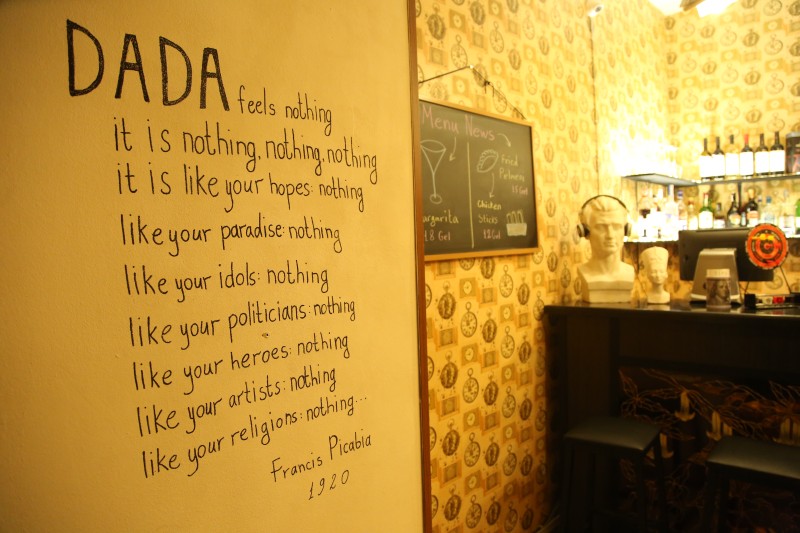 DADA feels nothing
it is nothing, nothing, nothing
it is like your hopes: nothing
like your paradise: nothing
like your idols: nothing
like your politicians: nothing
like your heroes: nothing
like your artists: nothing
like your religions: nothing...
Francis Picabia
1920
Menu News
Fried
Chicken
Sticks
argarita
18 Gel